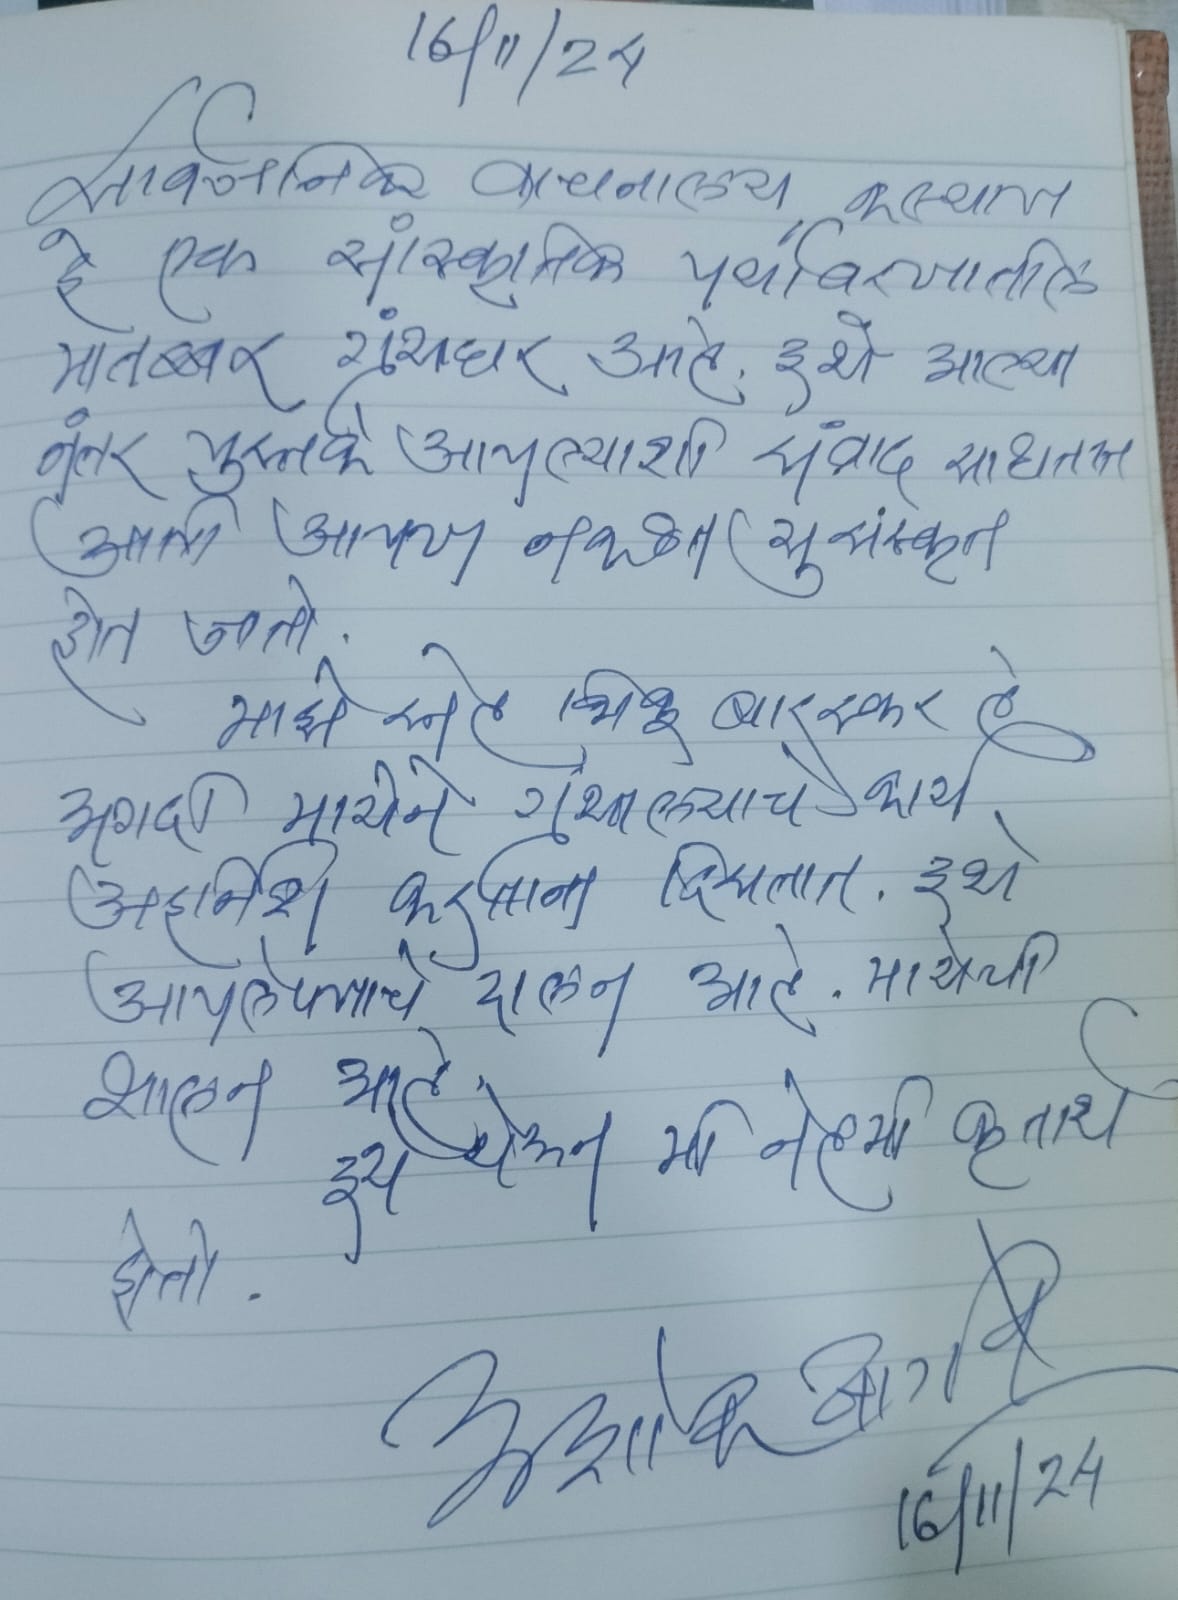 16/11/24
सार्वजनिक वाचनालय, कल्याण
हे एक सांस्कृतिक पर्यावरणातील
मातब्बर ग्रंथघर आहे. इथे आल्या
नंतर पुस्तके आपल्याशी संवाद साधतात
आणि आपण नकळत सुसंस्कृत
होत जातो.
माझे स्नेही भिकू बारस्कर हे
अगदी मायेने ग्रंथालयाचे कार्य
अहर्निश करताना दिसतात. इथे
आपलेपणाचे दालन आहे. मायेची
दालन आहे.
इथे येऊन मी नेहमी कृतार्थ
होतो.
अशोक बागवे
16/11/24